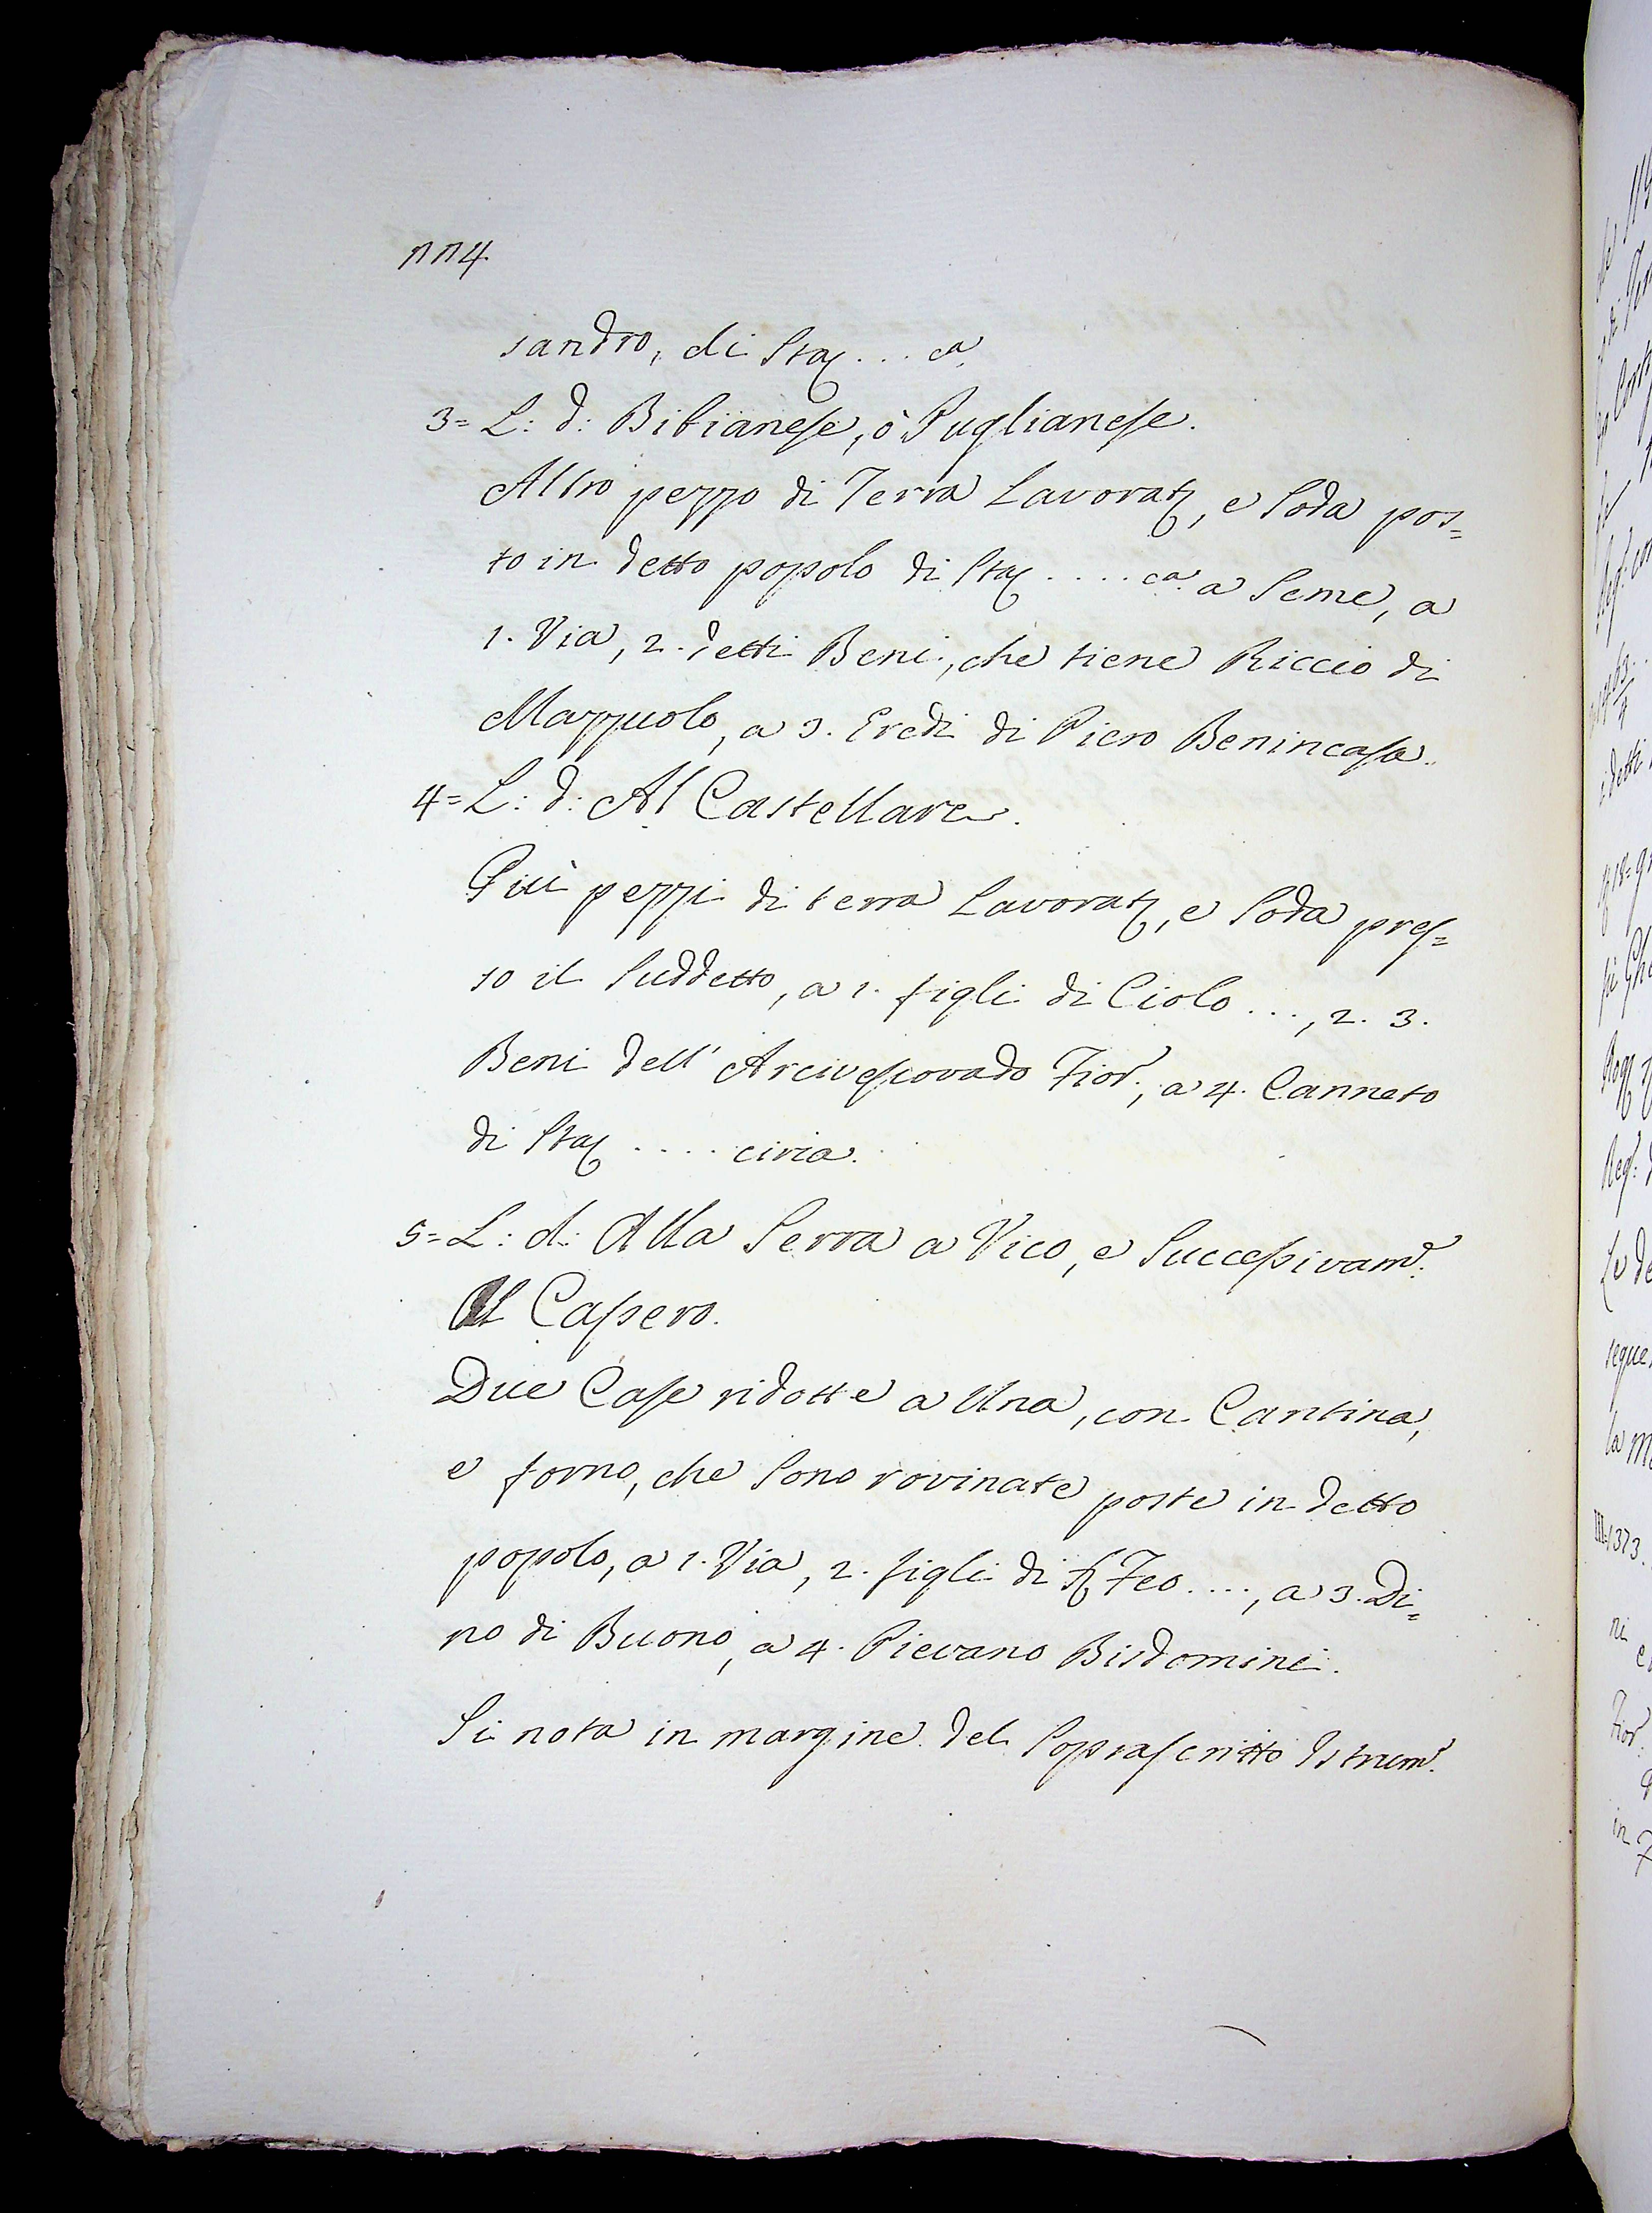 114
sandro, di Sta; ... ca.
3= L: d: Bibianese, ò Puglianese.
Altro pezzo di Terra Lavorat;, e Soda pos=
to in detto popolo di Sta; .... ca. a Seme, a
1. Via, 2. detti Beni, che tiene Riccio di
Mazzuolo, a 3. Eredi di Piero Benincasa.
4= L: d: Al Castellare.
Più pezzi di terra Lavorat;, e Soda pres=
so il Suddetto, a 1. figli di Ciolo ..., 2. 3.
Beni dell' Arcivescovado Fior:, a 4. Canneto
di Sta; .... circa.
5= L: d: Alla Serra a Vico, e Successivam:
Al Cassero.
Due Case ridotte a Una, con Cantina,
e forno, che Sono rovinate poste in detto
popolo, a 1. Via, 2. figli di Feo ...., a 3. Di=
no di Buono, a 4. Pievano Bisdomini.
Si nota in margine del Soprascritto Istrum: